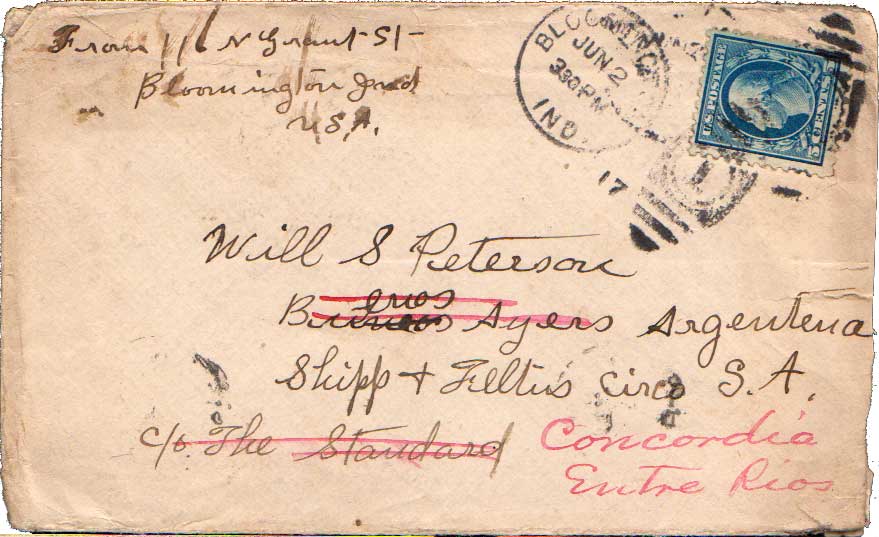 From 116 N Grant St
Bloomington Ind
U.S.A.
BLOOMING
JUN 2
330PM
IND
17
U.S. POSTAGE
1
Will S Peterson
enos
Ayers Argentena
Shipp + Feltus Circo S.A.
c/o The Standard
Concordia
Entre Rios